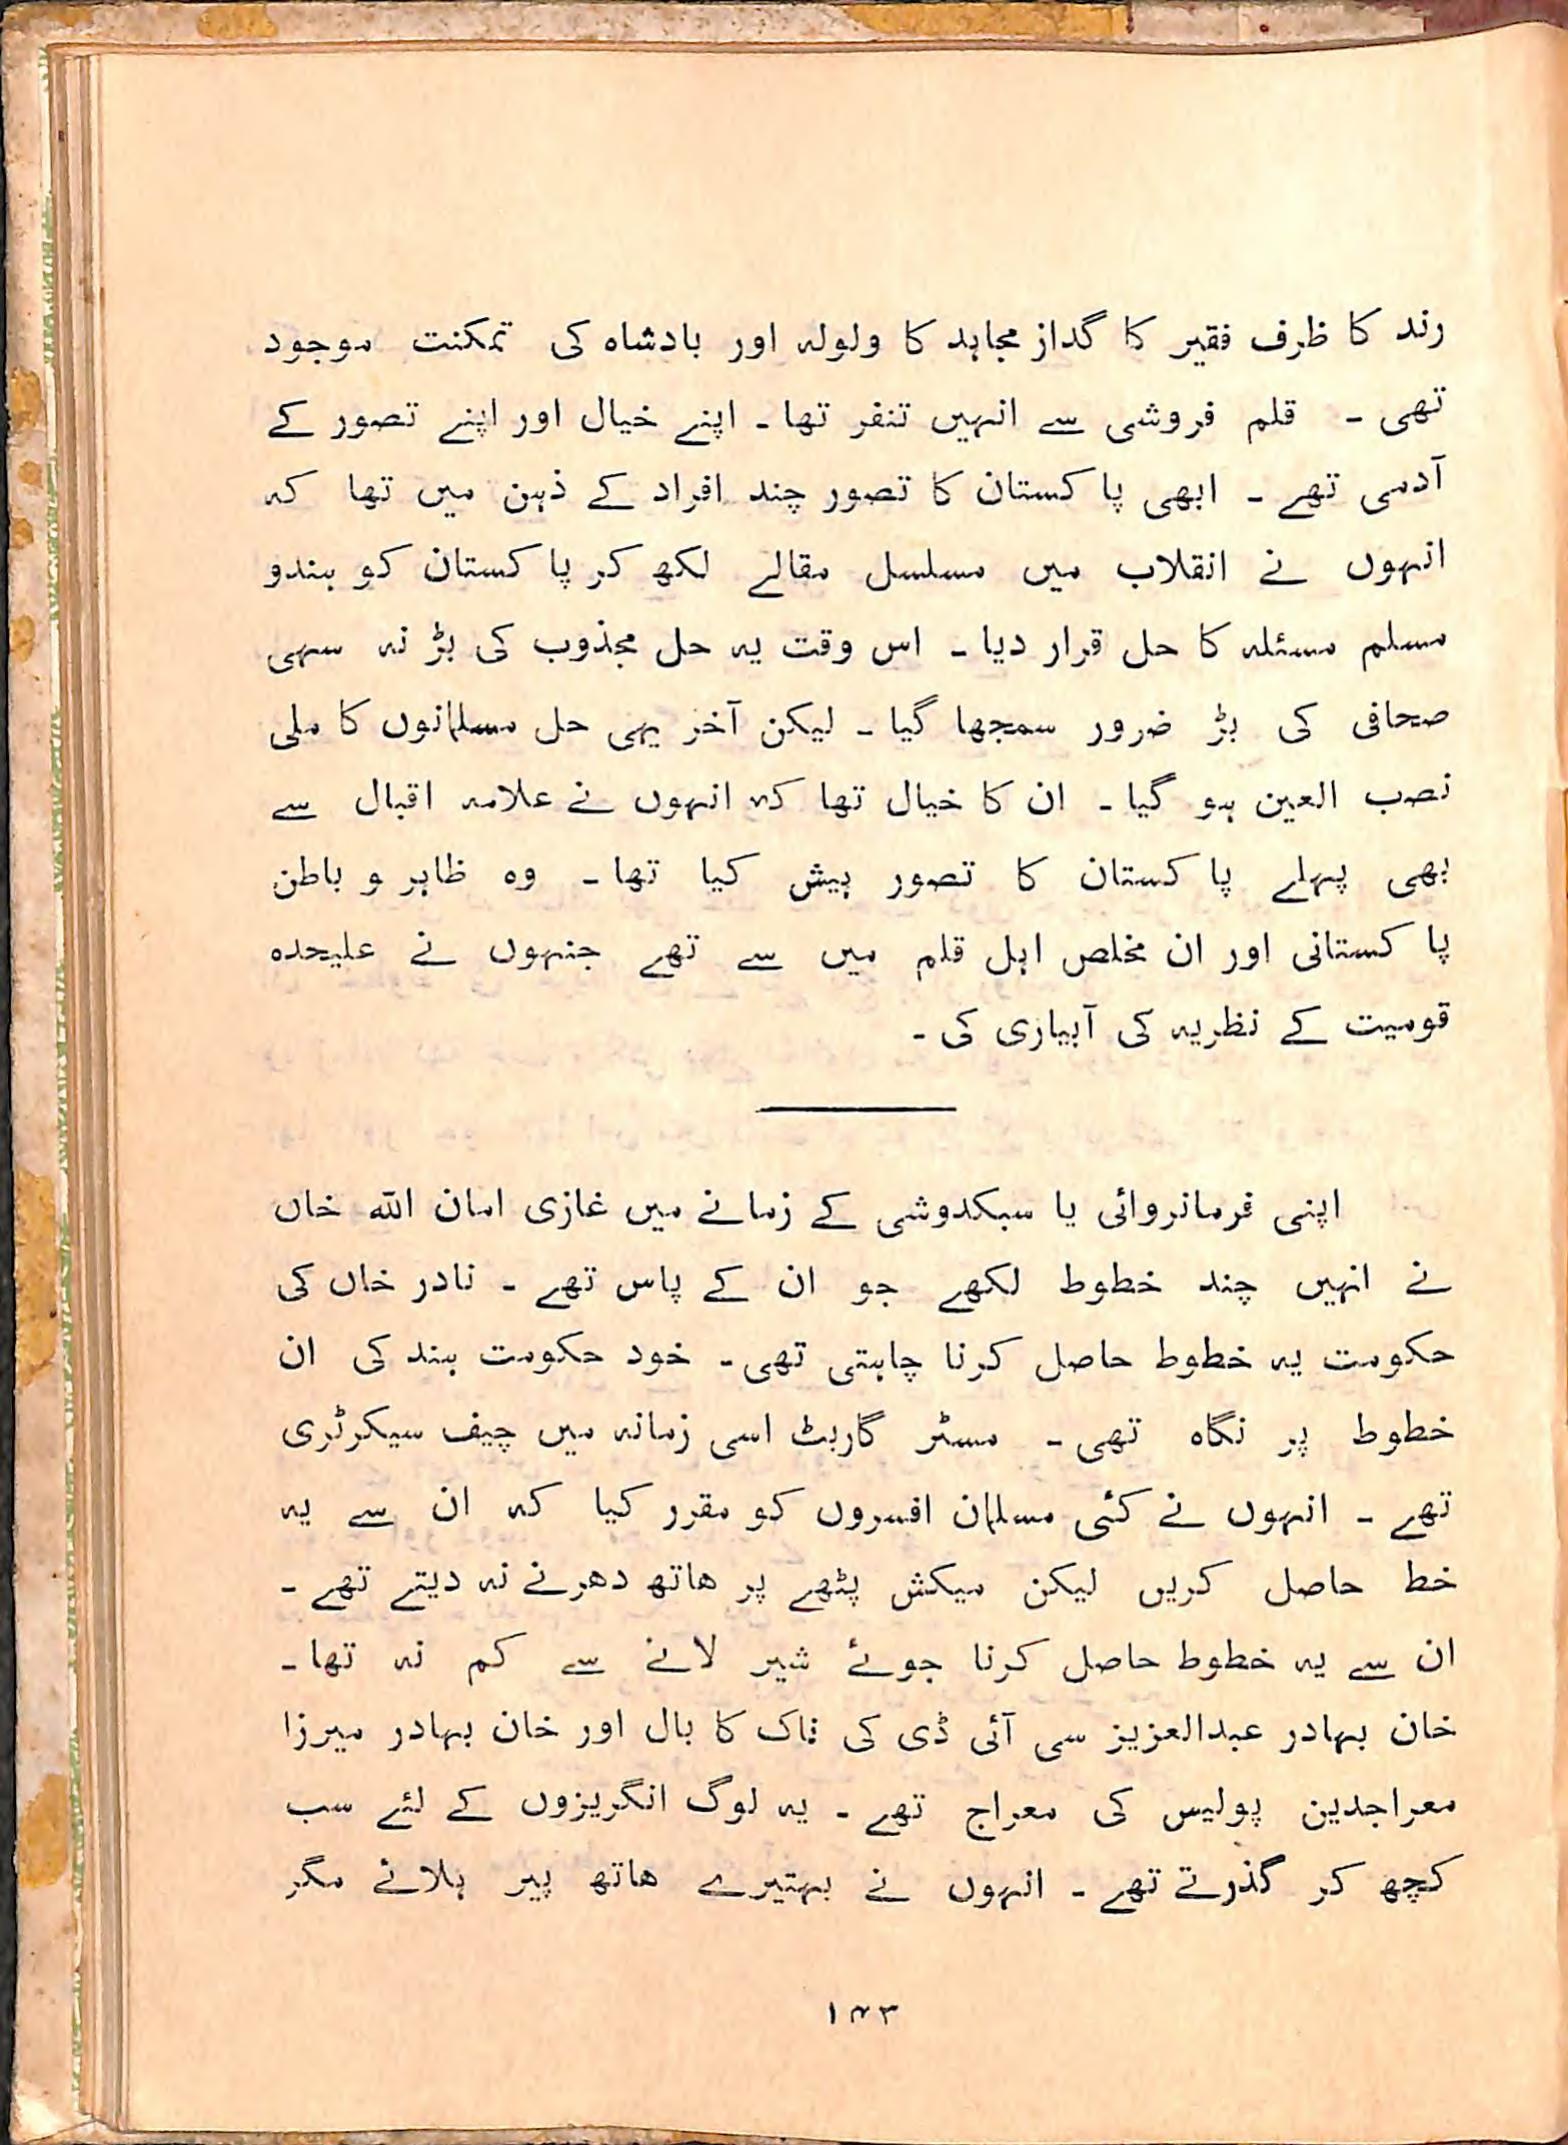 رند کا ظرف فقیر کا گداز مجاہد کا ولولہ اور بادشاہ کی تمکنت موجود
تھی ۔ قلم فروشی سے انہیں تنفر تھا ۔ اپنے خیال اور اپنے تصور کے
آدمی تھے ۔ ابھی پاکستان کا تصور چند افراد کے ذہن میں تھا کہ
انہوں نے انقلاب میں مسلسل مقالے لکھ کر پاکستان کو ہندو
مسلم مسئلہ کا حل قرار دیا ۔ اس وقت یہ حل مجذوب کی بڑ نہ سہی
صحافی کی بڑ ضرور سمجھا گیا ۔ لیکن آخر یہی حل مسلمانوں کا ملی
نصب العین ہو گیا ۔ ان کا خیال تھا کہ انہوں نے علامہ اقبال سے
بھی پہلے پاکستان کا تصور پیش کیا تھا ۔ وہ ظاہر و باطن
پاکستانی اور ان مخلص اہل قلم میں سے تھے جنہوں نے علیحدہ
قومیت کے نظریہ کی آبیاری کی ۔
اپنی فرمانروائی یا سبکدوشی کے زمانے میں غازی امان اللہ خاں
نے انہیں چند خطوط لکھے جو ان کے پاس تھے ۔ نادر خاں کی
حکومت یہ خطوط حاصل کرنا چاہتی تھی ۔ خود حکومت ہند کی ان
خطوط پر نگاہ تھی ۔ مسٹر گاربٹ اسی زمانہ میں چیف سیکرٹری
تھے ۔ انہوں نے کئی مسلمان افسروں کو مقرر کیا کہ ان سے یہ
خط حاصل کریں لیکن میکش پٹھے پر ھاتھ دھرنے نہ دیتے تھے ۔
ان سے یہ خطوط حاصل کرنا جوئے شیر لانے سے کم نہ تھا ۔
خان بہادر عبدالعزیز سی آئی ڈی کی ناک کا بال اور خان بہادر میرزا
معراجدین پولیس کی معراج تھے ۔ یہ لوگ انگریزوں کے لئے سب
کچھ کر گذرتے تھے ۔ انہوں نے بہتیرے ھاتھ پیر ہلائے مگر
۱۴۳